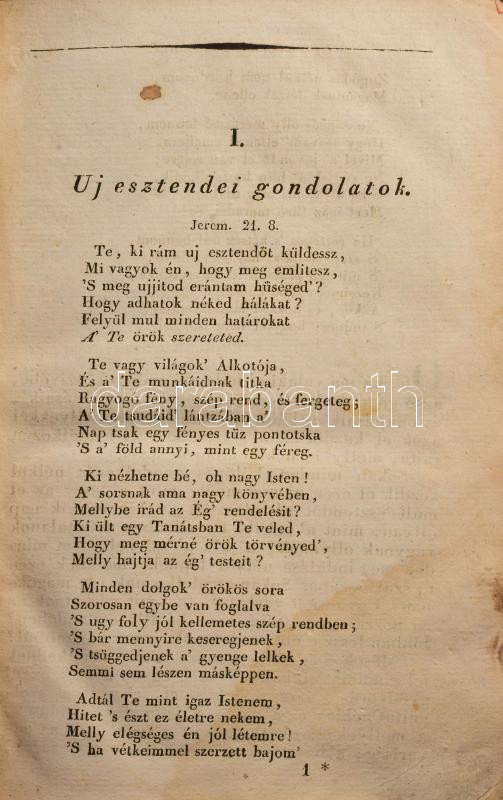 I.
Uj esztendei gondolatok.
Jerem. 21. 8.
Te, ki rám uj esztendőt küldessz,
Mi vagyok én, hogy meg emlitesz,
'S meg ujjitod erántam hüséged'?
Hogy adhatok néked hálákat?
Felyül mul minden határokat
A' Te örök szereteted.
Te vagy világok' Alkotója,
És a' Te munkáidnak titka
Ragyogó fény, szép rend, és fergeteg;
A' Te taudáid' lántzában a'
Nap tsak egy fényes tüz pontotska
'S a' föld annyi, mint egy féreg.
Ki nézhetne bé, oh nagy Isten!
A' sorsnak ama nagy könyvében,
Mellybe irád az Ég' rendelésit?
Ki ült egy Tanátsban Te veled,
Hogy meg mérné örök törvényed',
Melly hajtja az ég' testeit?
Minden dolgok' örökös sora
Szorosan egybe van foglalva
'S ugy foly jól kellemetes szép rendben;
'S bár mennyire keseregjenek,
'S tsüggedjenek a' gyenge lelkek,
Semmi sem lészen másképpen.
Adtál Te mint igaz Istenem,
Hitet 's észt ez életre nekem,
Melly elégséges én jól létemre!
'S ha vétkeimmel szerzett bajom'
1 *
darabanth